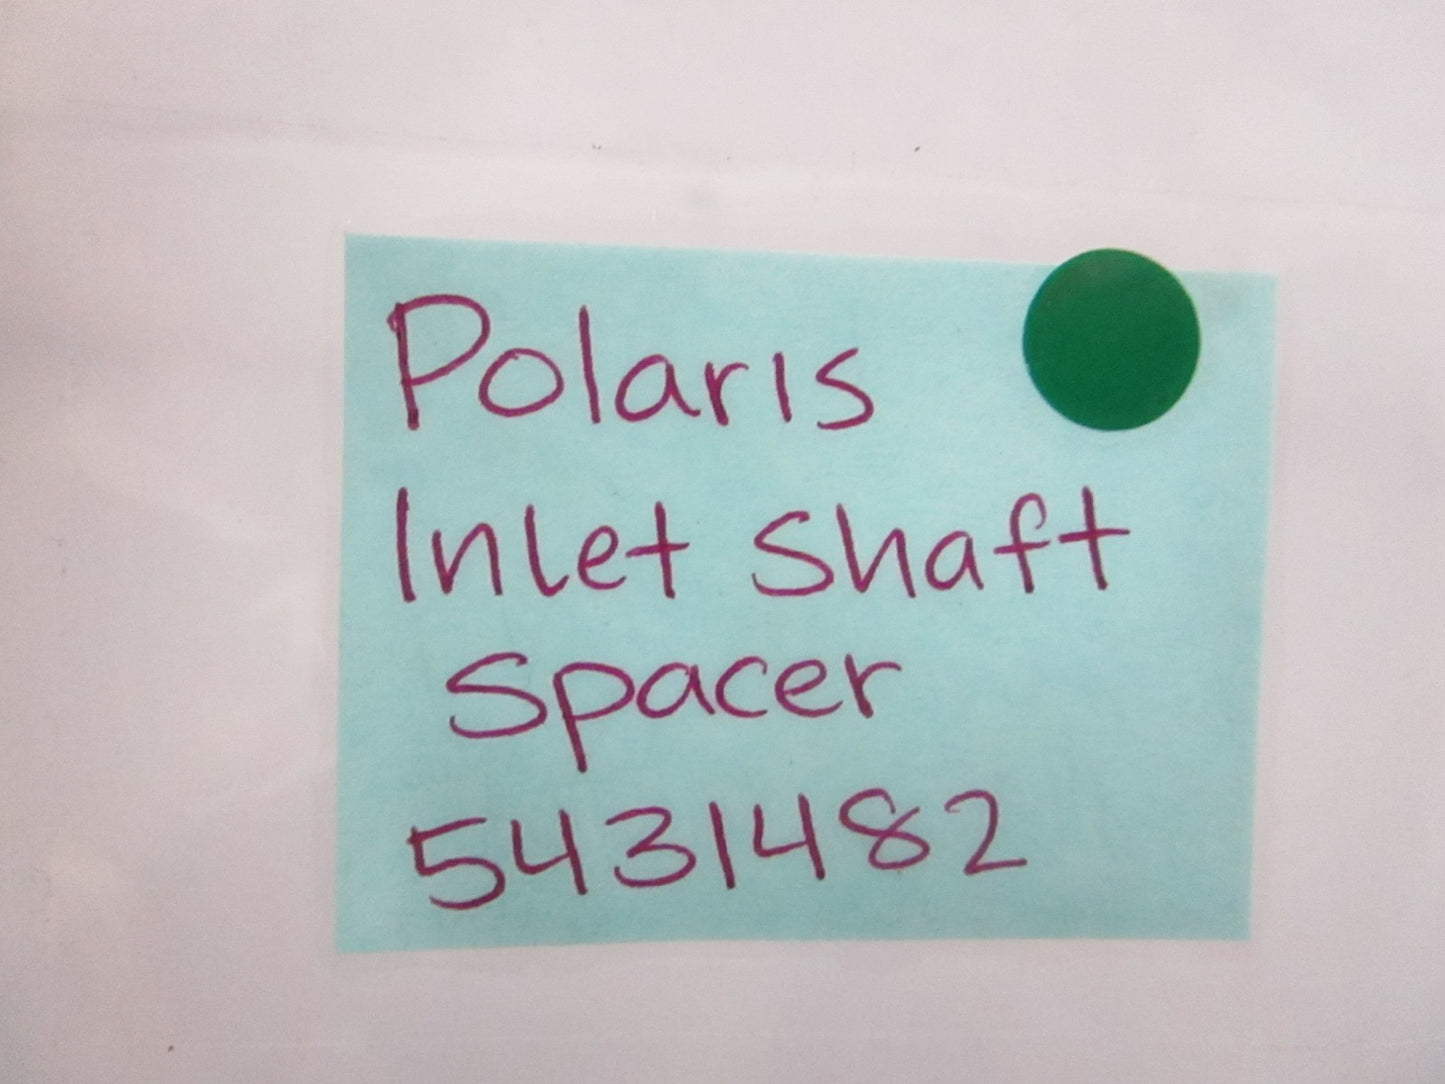 Polaris
Inlet Shaft
Spacer
5431482